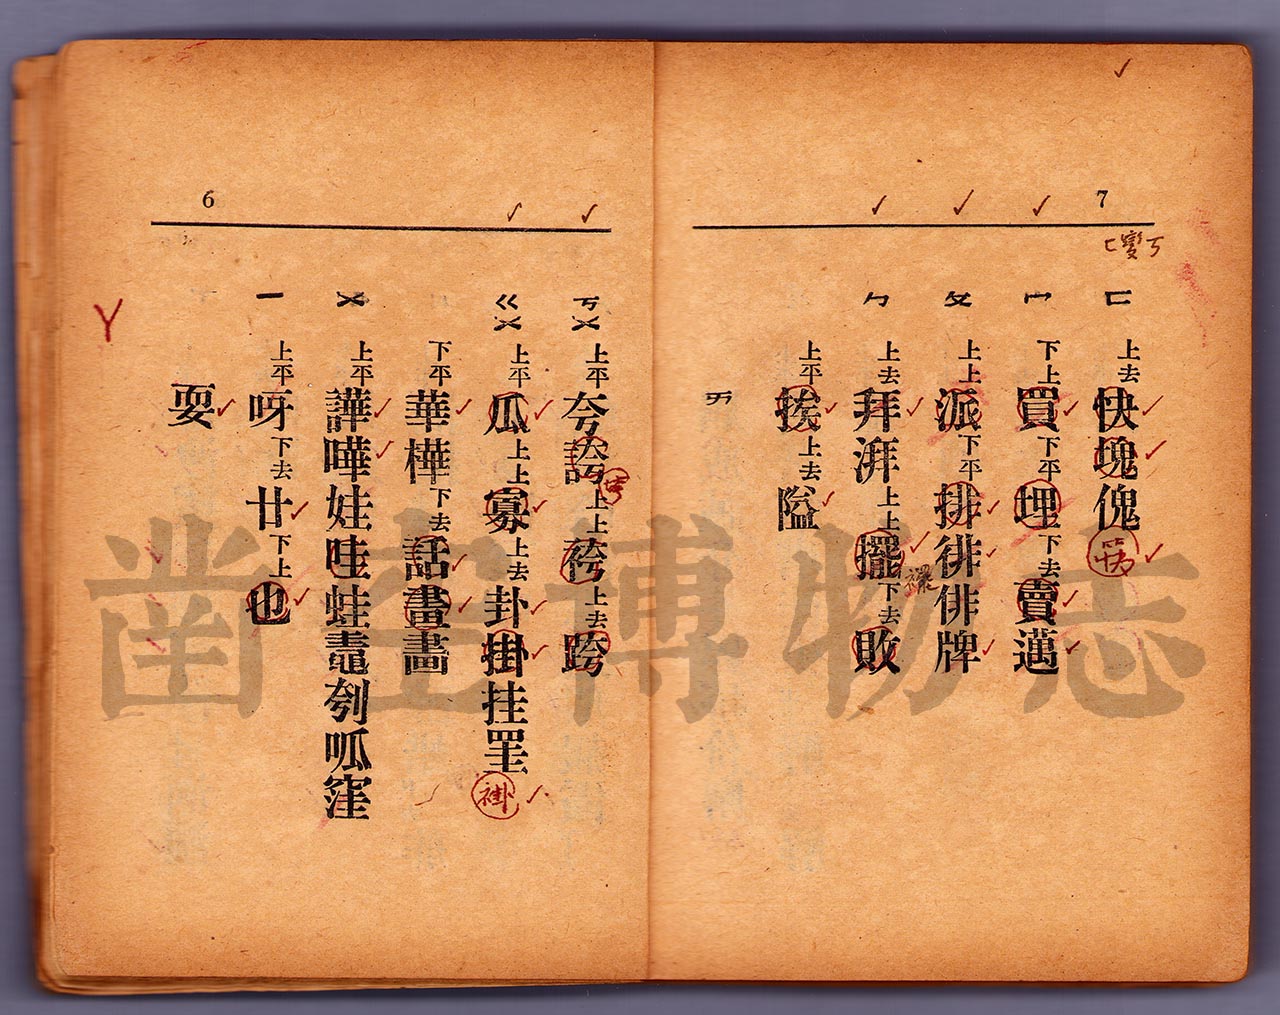 6
ㄚ
耍
ㄧ 上平 呀 下去 廿 下上 也
ㄨ 上平 譁嘩娃哇蛙鼃刳呱窪
下平 華樺 下去 話畫畵
ㄍㄨ 上平 瓜 上上 寡 上去 卦掛挂罣褂
ㄎㄨ 上平 夸誇 上上 袴 上去 跨
7
ㄞ
上平 挨 上去 隘
ㄅ 上去 拜湃 上上 擺 下去 敗
ㄆ 上上 派 下平 排徘俳牌
ㄇ 下上 買 下平 埋 下去 賣邁
ㄈ 上去 快塊傀
ㄈ變ㄎ
凿空博物志